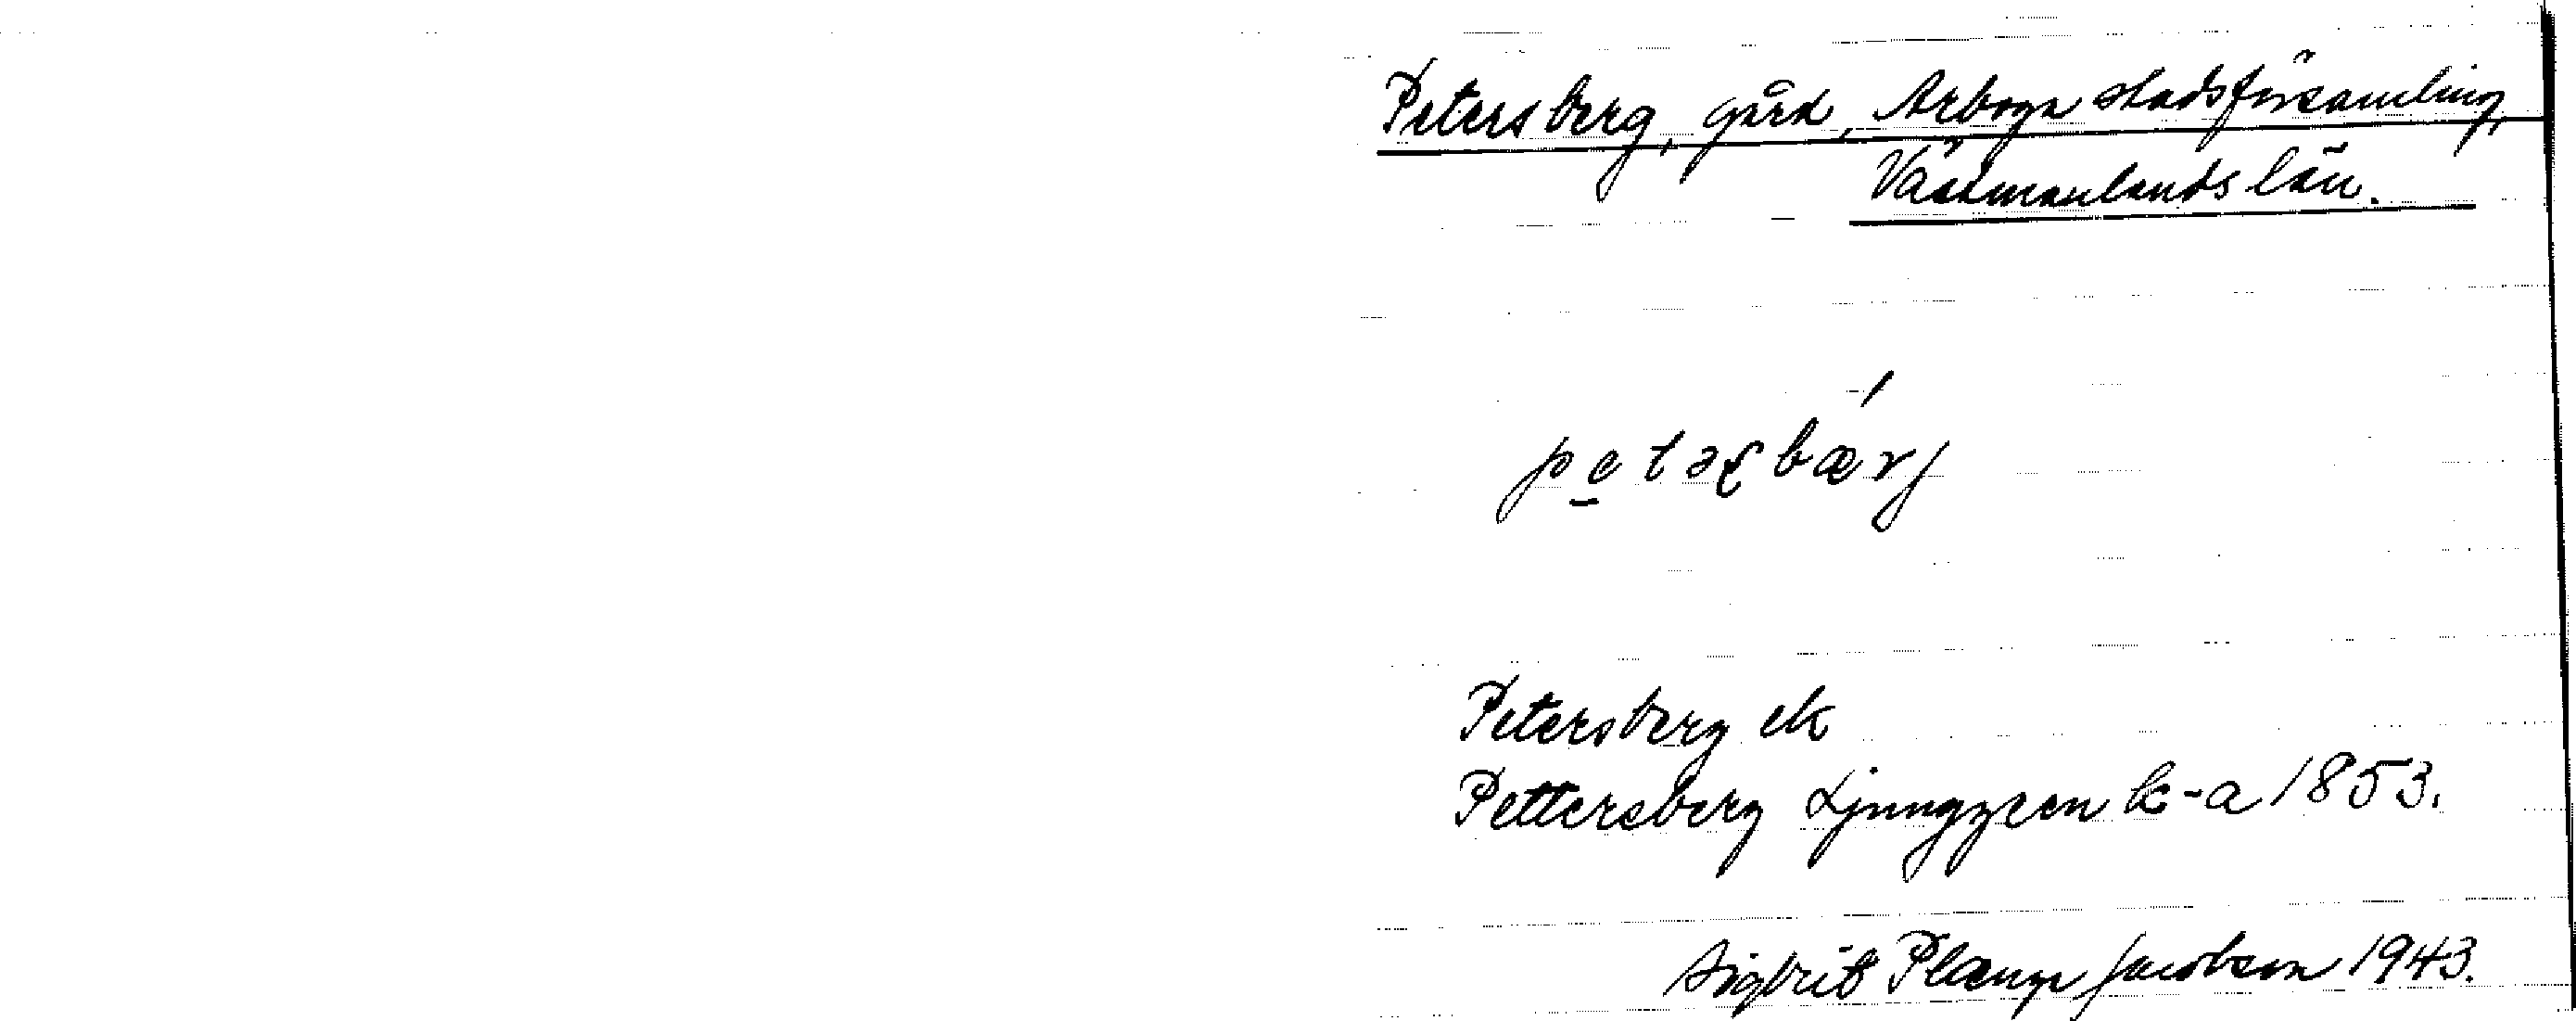 Petersberg, gård, Arboga stadsförsamling,
Västmanlands län.
petəʂbæ´rj
Petersberg ek
Pettersberg Ljunggren k-a 1853.
Sigbrit Plænge Jacobson 1943.